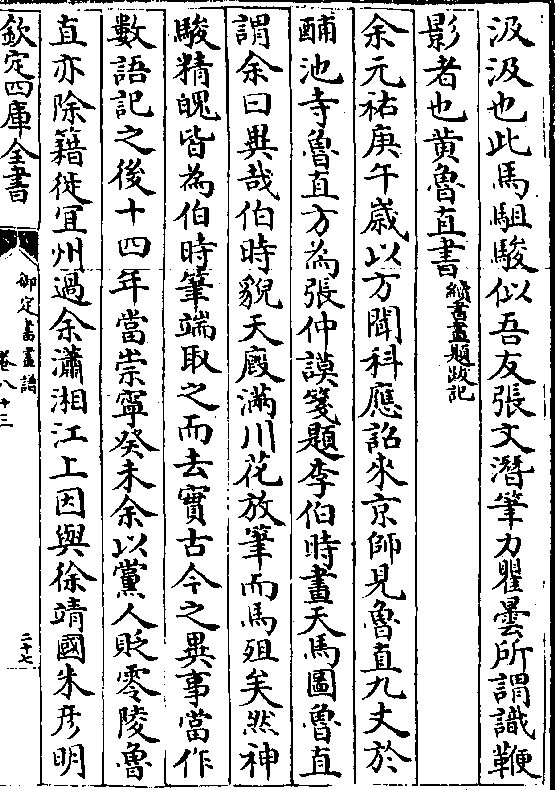 汲汲也此馬駔駿似吾友張文潛筆力瞿曇所謂識鞭
影者也黄魯直書續書畫題跋記
余元祐庚午嵗以方聞科應詔來京師見魯直九丈於
酺池寺魯直方為張仲謨箋題李伯時畫天馬圖魯直
謂余曰異哉伯時貌天廐滿川花放筆而馬殂矣然神
駿精魄皆為伯時筆端取之而去實古今之異事當作
數語記之後十四年當崇寧癸未余以黨人貶零陵魯
直亦除籍徙宜州過余瀟湘江上因與徐靖國朱彦明
欽定四庫全書
御定書畫譜
卷八十三
二十七